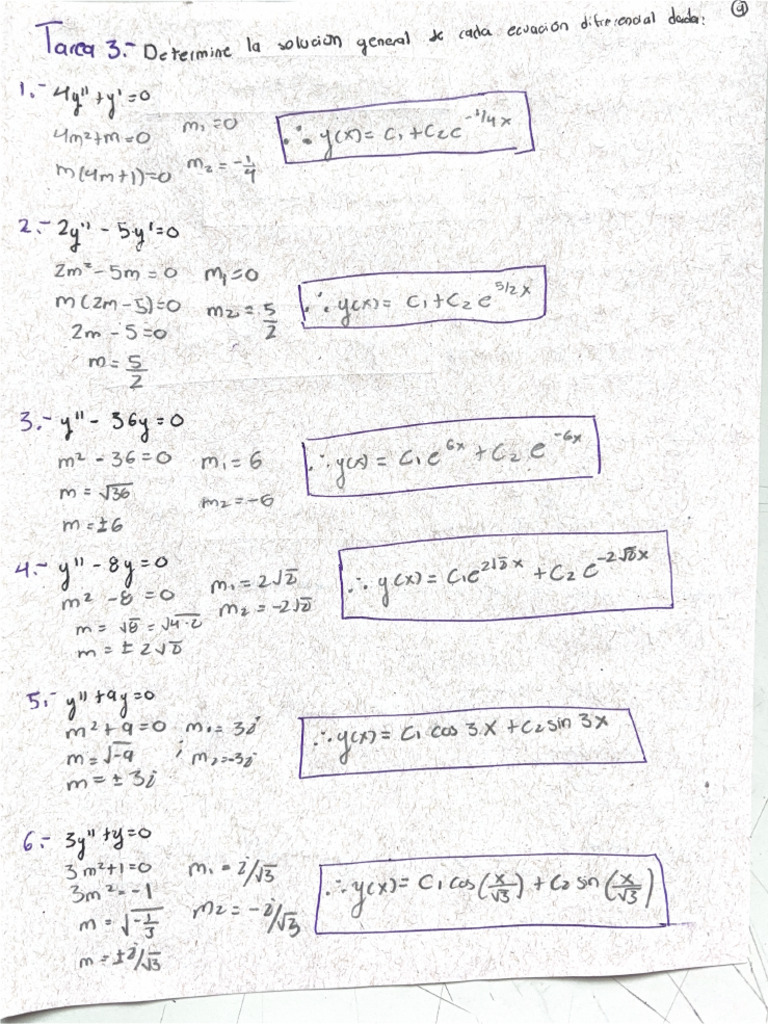 Tarea 3.- Determine la solución general de cada ecuación diferencial dada:
1.- 4y'' + y' = 0
4m² + m = 0 m₁ = 0
m(4m+1) = 0 m₂ = -1/4
∴ y(x) = C₁ + C₂e^(-1/4 x)
2.- 2y'' - 5y' = 0
2m² - 5m = 0 m₁ = 0
m(2m-5) = 0 m₂ = 5/2
2m - 5 = 0
m = 5/2
∴ y(x) = C₁ + C₂e^(5/2 x)
3.- y'' - 36y = 0
m² - 36 = 0 m₁ = 6
m = √36 m₂ = -6
m = ±6
∴ y(x) = C₁e^(6x) + C₂e^(-6x)
4.- y'' - 8y = 0
m² - 8 = 0 m₁ = 2√2
m = √8 = √4·2 m₂ = -2√2
m = ± 2√2
∴ y(x) = C₁e^(2√2 x) + C₂e^(-2√2 x)
5.- y'' + 9y = 0
m² + 9 = 0 m₁ = 3i
m = √-9 ; m₂ = -3i
m = ± 3i
∴ y(x) = C₁ cos 3x + C₂ sin 3x
6.- 3y'' + y = 0
3m² + 1 = 0 m₁ = i/√3
3m² = -1
m = √(-1/3) m₂ = -i/√3
m = ± i/√3
∴ y(x) = C₁ cos(x/√3) + C₂ sin(x/√3)